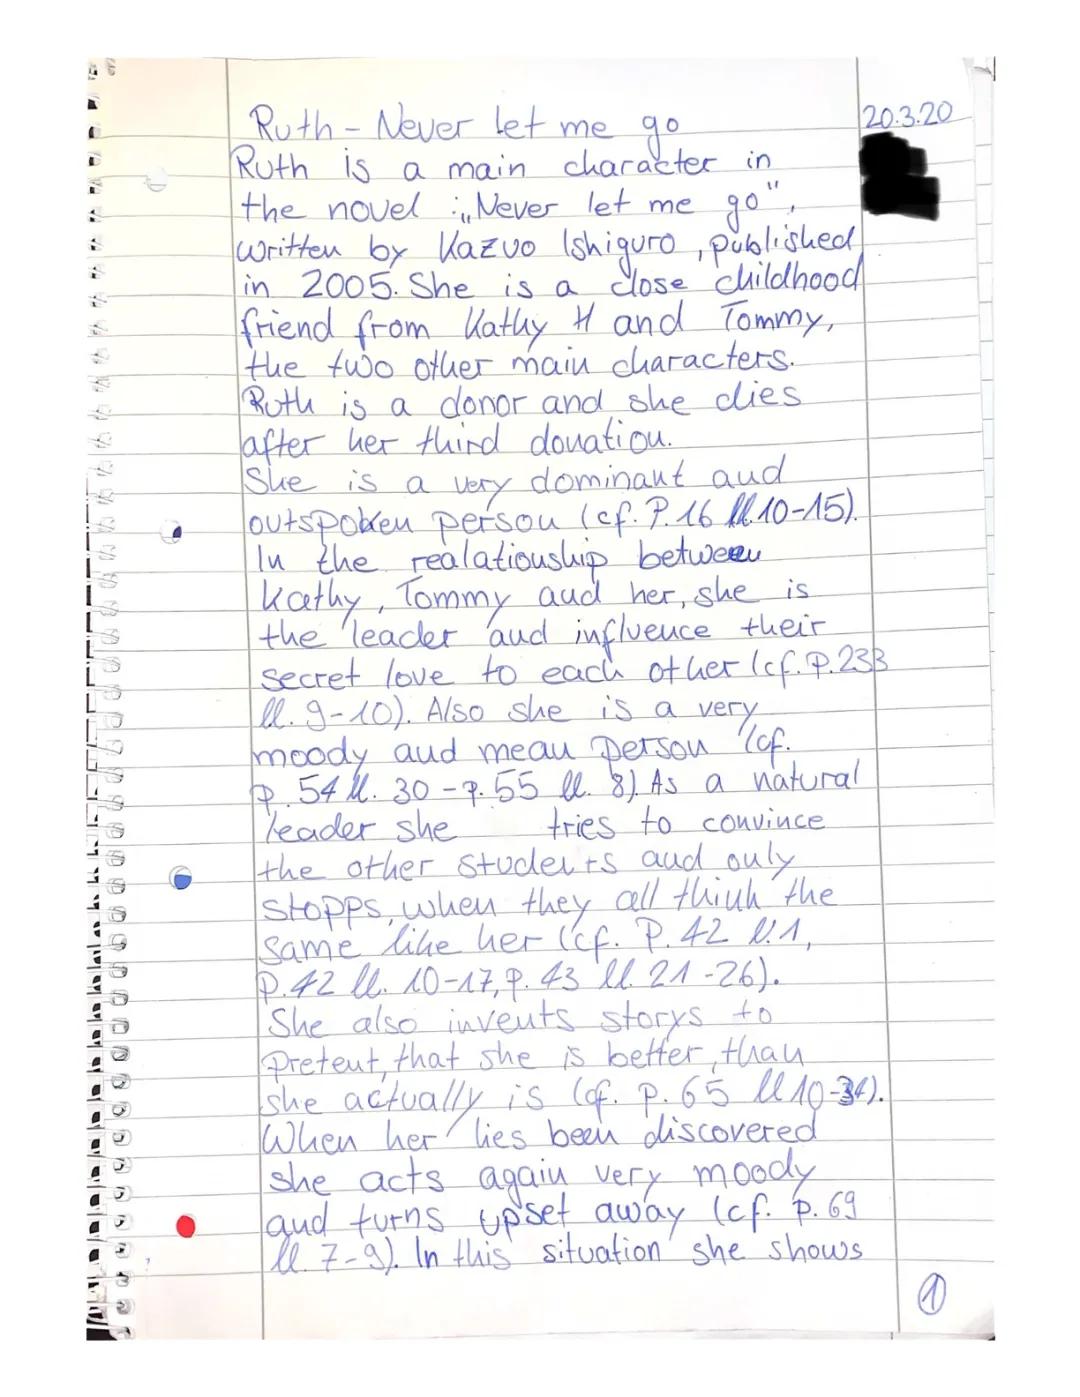 Ruth - Never let me go
20.3.20
Ruth is a main character in
the novel „Never let me go",
written by Kazuo Ishiguro, published
in 2005. She is a close childhood
friend from Kathy H and Tommy,
the two other main characters.
Ruth is a donor and she dies
after her third donation.
She is a very dominant and
outspoken person (cf. P. 16 ll. 10-15).
In the realationship between
Kathy, Tommy and her, she is
the leader and influence their
secret love to each other (cf. P. 233
ll. 9-10). Also she is a very
moody and mean person (cf.
p. 54 ll. 30 - p. 55 ll. 8). As a natural
leader she tries to convince
the other students and only
stopps, when they all think the
same like her (cf. P. 42 l. 1,
p. 42 ll. 10-17, p. 43 ll. 21-26).
She also invents storys to
pretent, that she is better, than
she actually is (cf. p. 65 ll 10-34).
When her lies been discovered
she acts again very moody
and turns upset away (cf. p. 69
ll. 7-9). In this situation she shows
1